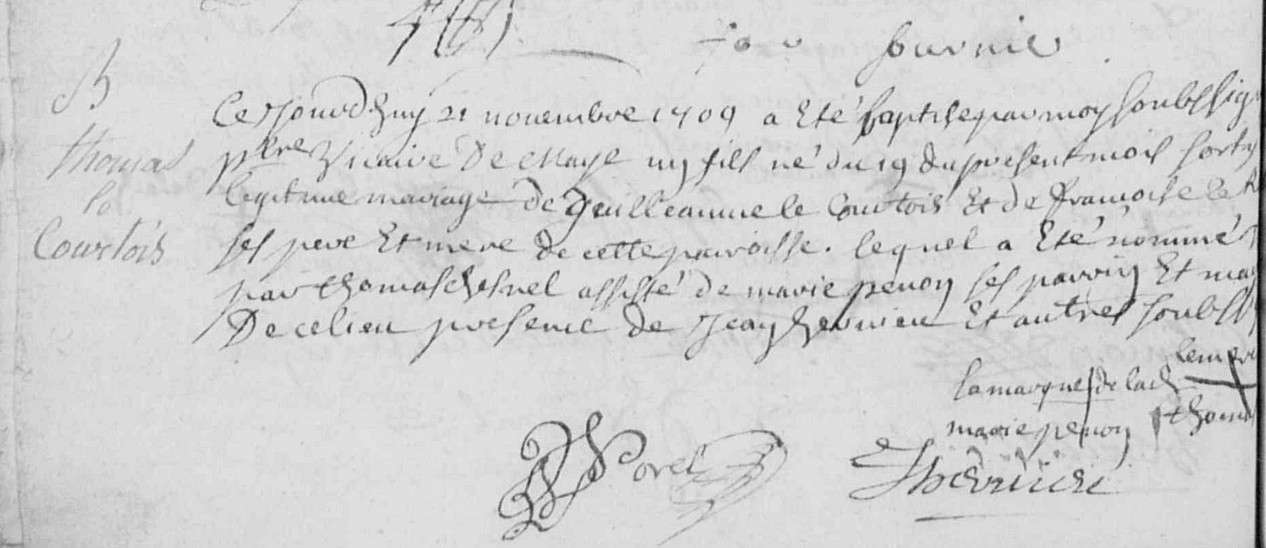 fournie
B
thomas
le
Courtois
Ce Jourdhuy 21 novembre 1709 a été baptisé par moy soubssig
ptre vicaire De un fils né du 19 du present mois sorty
legitime mariage de Guilleaume le Courtois Et de francoise le
ses pere Et mere de cette paroisse. lequel a Eté nommé
par thomas chesnel assisté de marie penon ses parrin Et ma
De ce lieu presence de Jean hervieu Et autres soubss
la marque de lad
marie penon thom
Jhervieu